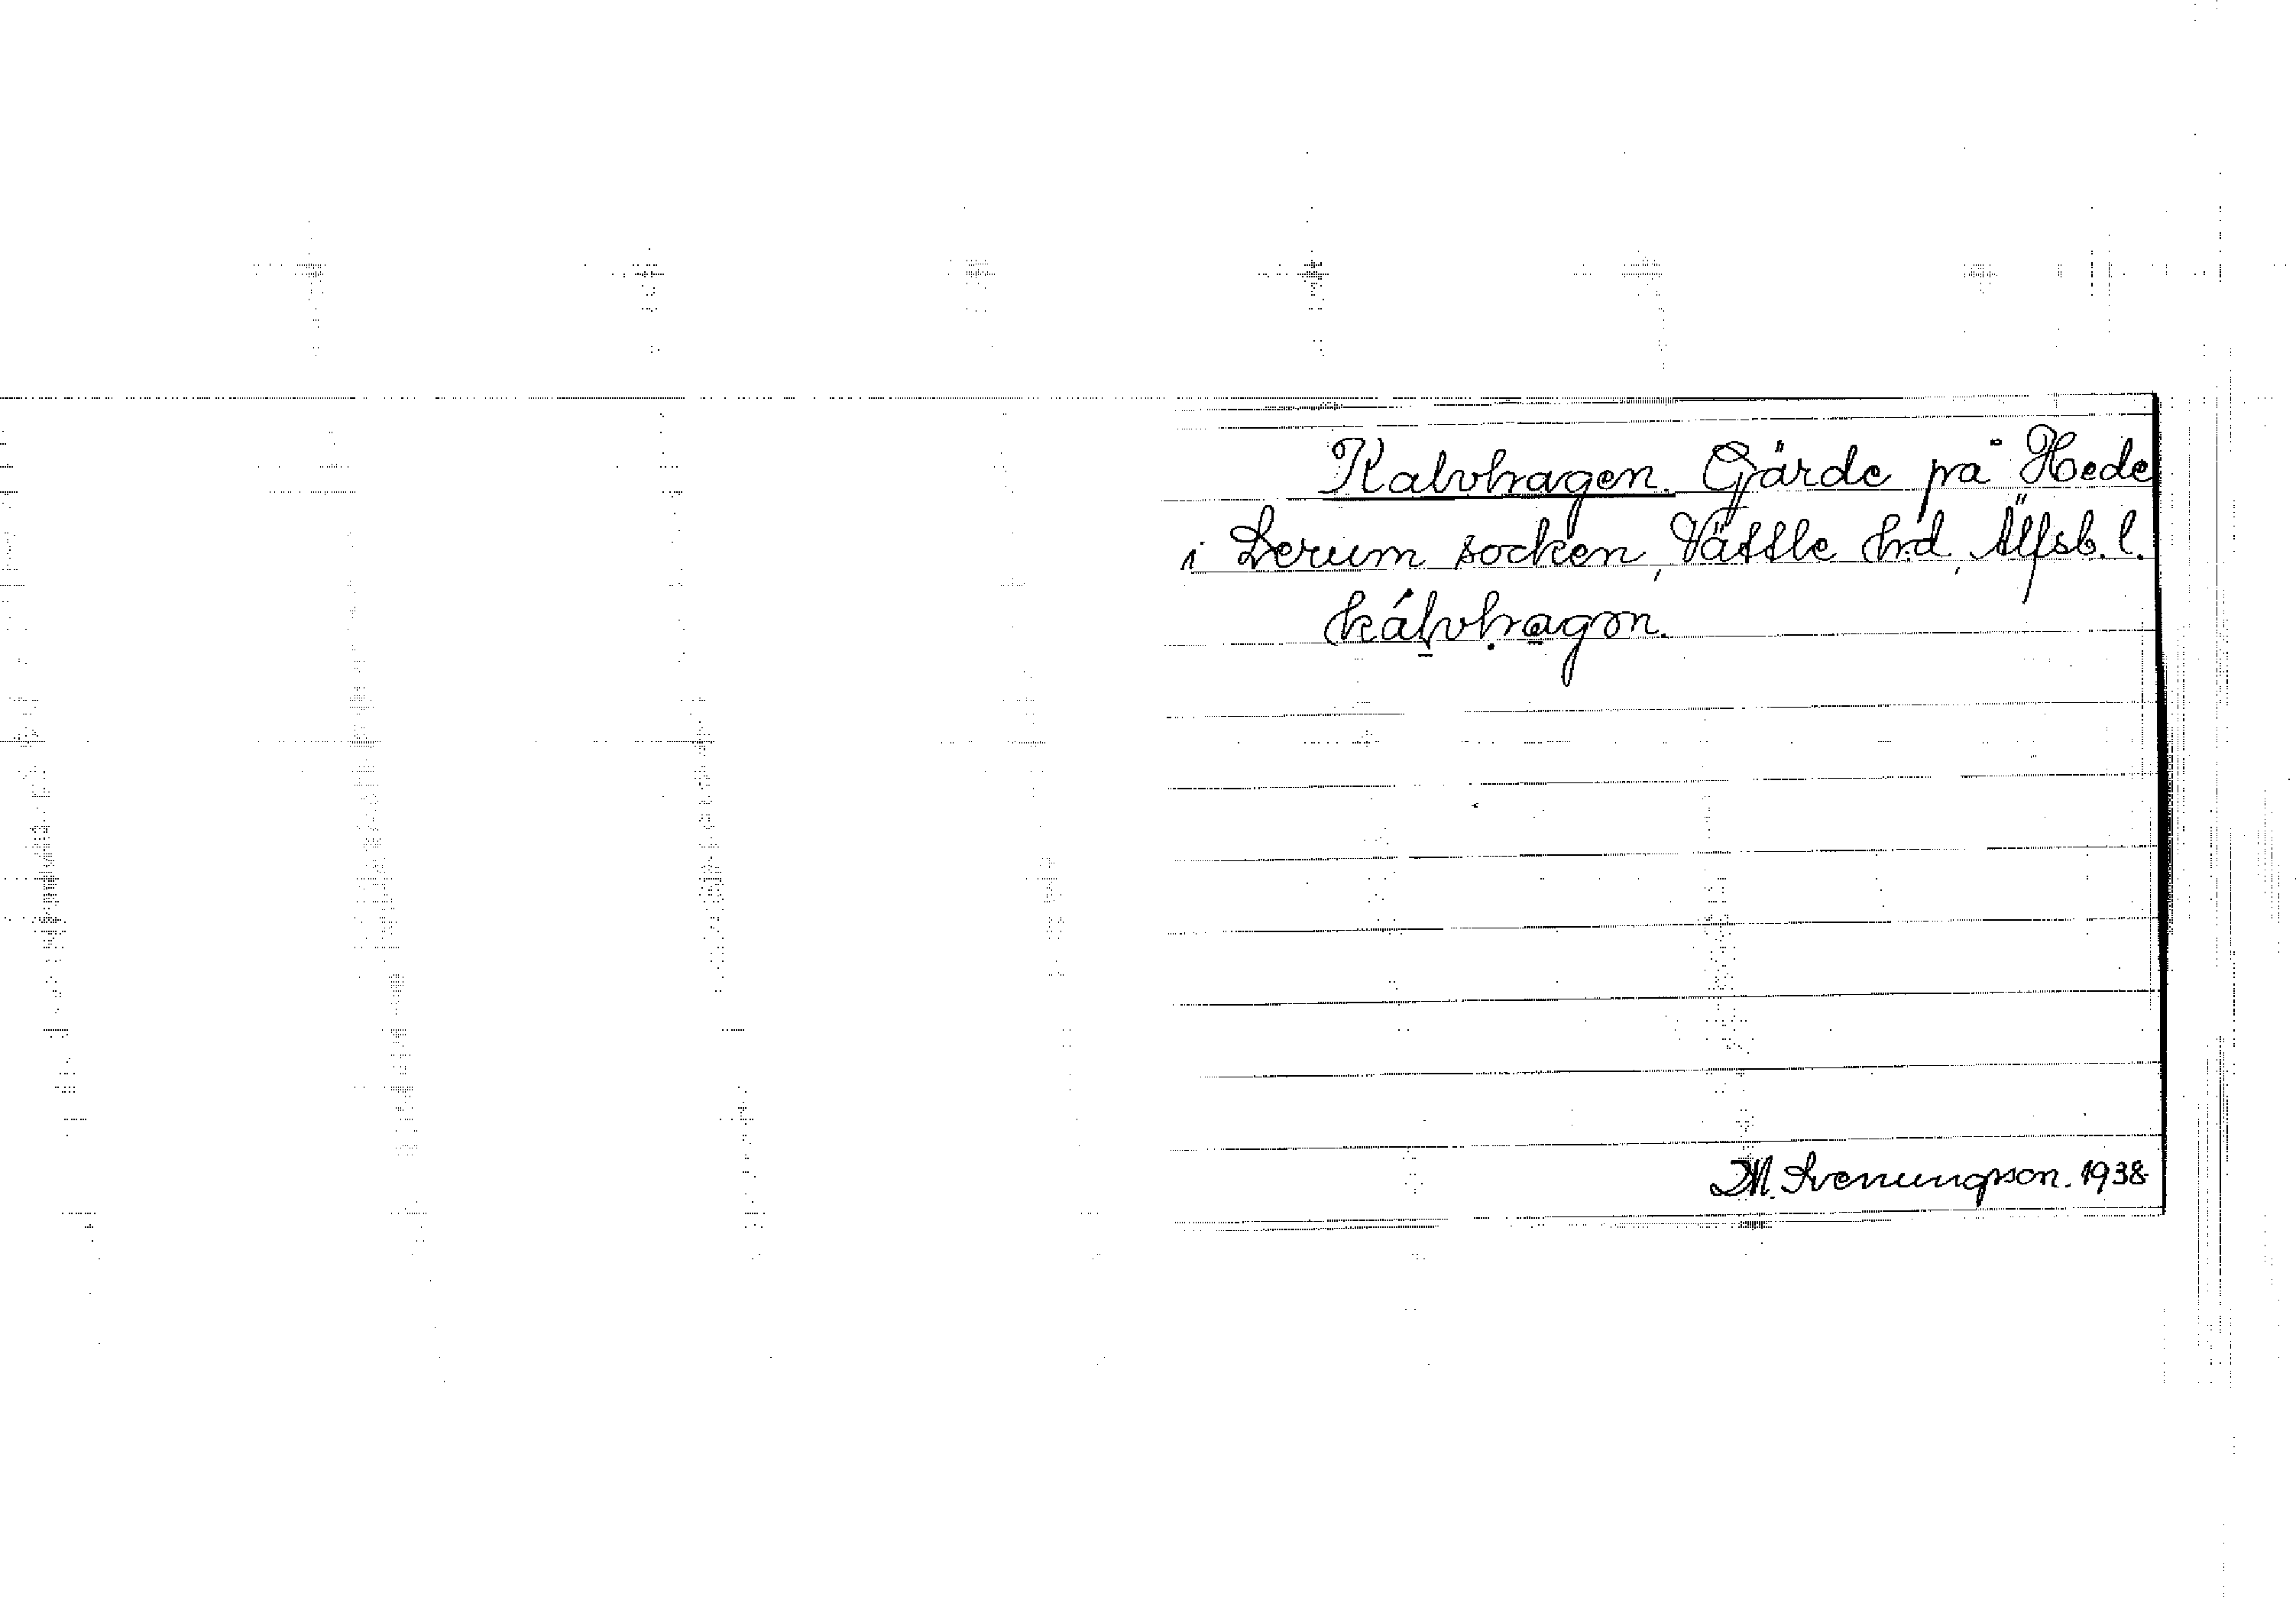 Kalvhagen. Gärde på Hede
i Lerum socken, Vättle hrd, Älfsb. l.
kálvhagən.
M. Svenungson. 1938